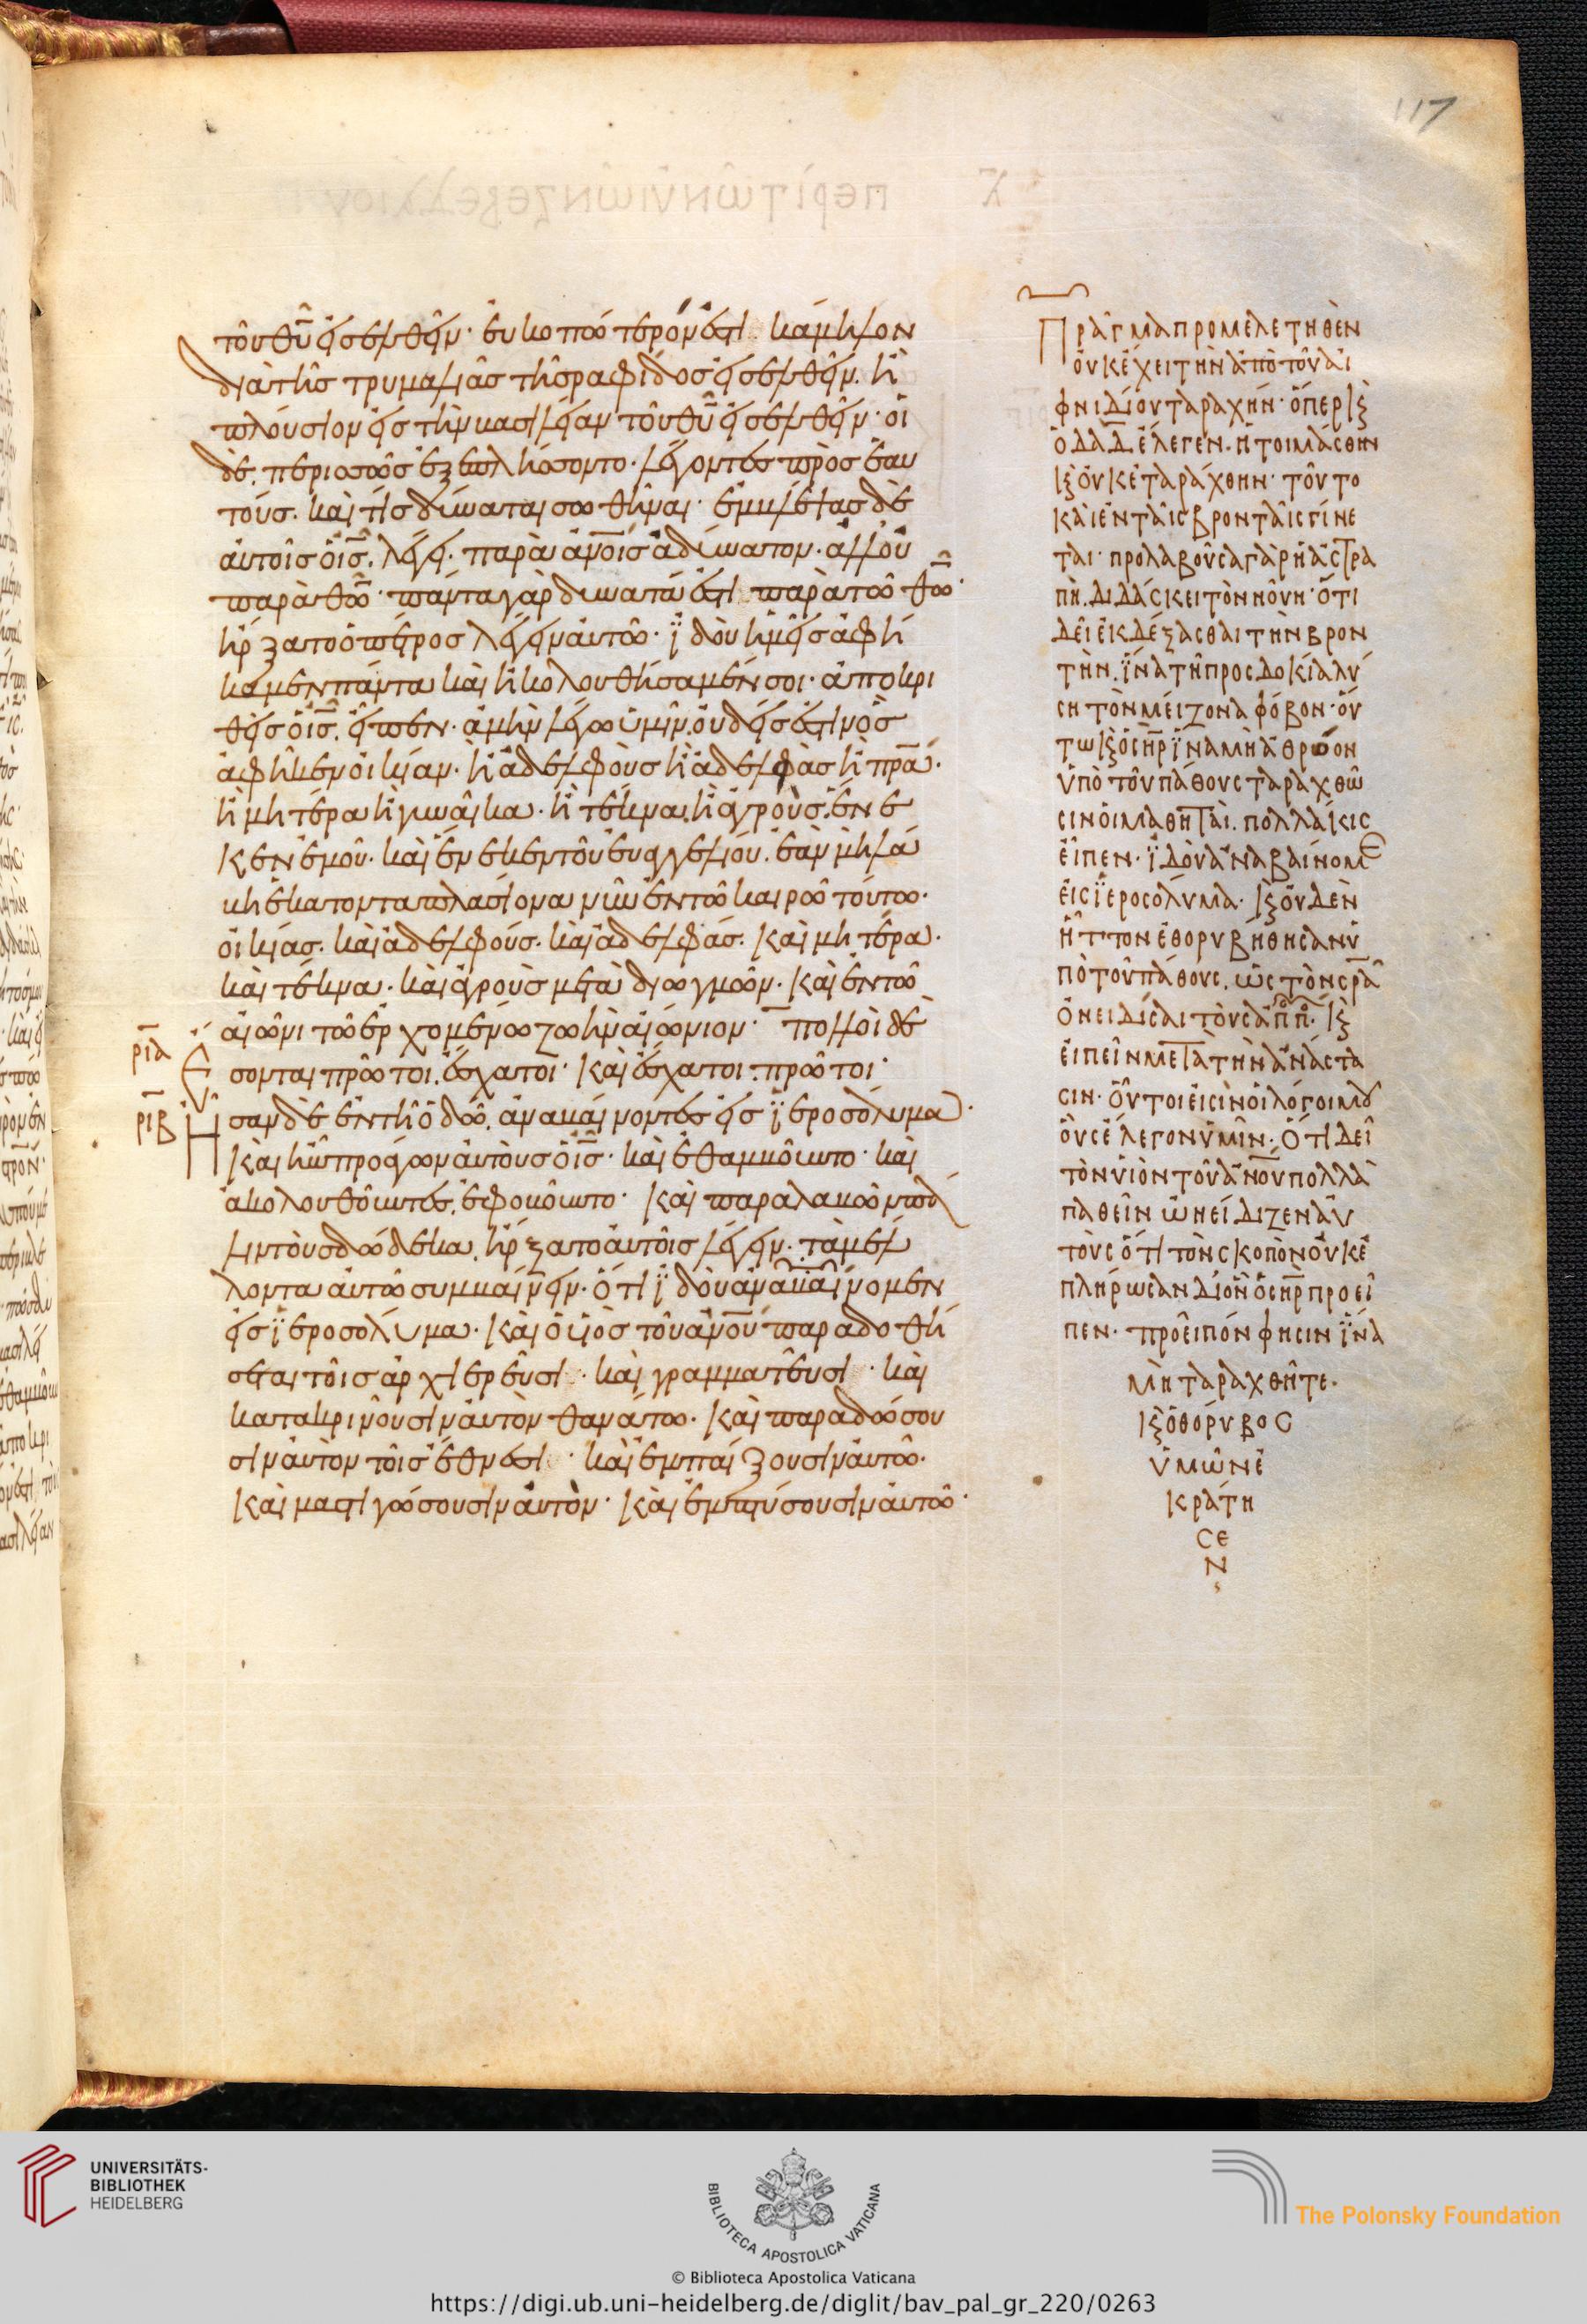 117
τοῦ θῦ εἰσελθεῖν· εὐκοπώτερόν ἐστι κάμηλον
διὰ τῆς τρυμαλιᾶς τῆς ραφίδος εἰσελθεῖν. ἢ
πλούσιον εἰς τὴν βασιλείαν τοῦ θῦ εἰσελθεῖν· οἱ
δὲ περισσῶς ἐξεπλήσσοντο· λέγοντες πρὸς ἑαυ
τούς. καὶ τίς δύναται σωθῆναι· ἐμβλέψας δὲ
αὐτοῖς ὁ ἰς. λέγει· παρὰ ἀνοις ἀδύνατον· ἀλλ' οὐ
παρὰ θῶ· πάντα γὰρ δυνατά ἐστι παρὰ τῶ θῶ·
ἤρξατο ὁ πέτρος λέγειν αὐτῶ· ἰδοὺ ἡμεῖς ἀφή
καμεν πάντα καὶ ἠκολουθήσαμέν σοι· ἀποκρι
θεὶς ὁ ἰς. εἶπεν· ἀμὴν λέγω ὑμῖν. οὐδείς ἐστιν ὃς
ἀφῆκεν οἰκίαν· ἢ ἀδελφοὺς ἢ ἀδελφὰς ἢ πρα·
ἢ μητέρα ἢ γυναῖκα· ἢ τέκνα. ἢ ἀγροὺς. ἕνε
κεν ἐμοῦ· καὶ ἕνεκεν τοῦ εὐαγγελίου. ἐὰν μὴ λά
βη ἑκατονταπλασίονα νῦν ἐν τῶ καιρῶ τούτω·
οἰκίας. καὶ ἀδελφούς. καὶ ἀδελφάς. καὶ μητέρα·
καὶ τέκνα· καὶ ἀγροὺς μετὰ διωγμῶν· καὶ ἐν τῶ
αἰῶνι τῶ ἐρχομένω ζωὴν αἰώνιον· πολλοὶ δὲ
ρια Ε σονται πρῶτοι. ἔσχατοι· καὶ ἔσχατοι. πρῶτοι·
ριβ Ησαν δὲ ἐν τῆ ὁδῶ. ἀναβαίνοντες εἰς ϊεροσόλυμα·
καὶ ἦν προάγων αὐτοὺς ὁ ἰς· καὶ ἐθαμβοῦντο· καὶ
ἀκολουθοῦντες. ἐφοβοῦντο· καὶ παραλαβὼν πά
λιν τοὺς δώδεκα. ἤρξατο αὐτοῖς λέγειν· τὰ μέλ
λοντα αὐτῶ συμβαίνειν· ὅτι ϊδοὺ ἀναβαίνομεν
εἰς ϊεροσόλυμα· καὶ ὁ υἱὸς τοῦ ἀνου παραδοθή
σεται τοῖς ἀρχιερεῦσι· καὶ γραμματεῦσι· καὶ
κατακρινοῦσιν αὐτὸν θανάτω· καὶ παραδώσου
σιν αὐτὸν τοῖς ἔθνεσι· καὶ ἐμπαίζουσιν αὐτῶ·
καὶ μαστιγώσουσιν αὐτὸν· καὶ ἐμπτύσουσιν αὐτῶ·
Πρᾶγμα προμελετηθὲν
οὐκ ἔχει τὴν ἀπὸ τοῦ αἰ
φνιδίου ταραχήν· ὅπερ κς
ὁ δαδ ἔλεγεν. ἡτοιμάσθην
κς οὐκ ἐταράχθην· τοῦτο
καὶ ἐν ταῖς βρονταῖς γίνε
ται· προλαβοῦσα γὰρ ἡ ἀστρα
πὴ. διδάσκει τὸν νοῦν· ὅτι
δεῖ ἐκδέξασθαι τὴν βρον
τὴν. ἵνα τῆ προσδοκία λύ
ση τὸν μείζονα φόβον· οὕ
τω κς ὁ σηρ ἵνα μὴ ἀθρόον
ὑπὸ τοῦ πάθους ταραχθῶ
σιν οἱ μαθηταὶ. πολλάκις
εἶπεν· ϊδοὺ ἀναβαίνομε
εἰς ϊεροσόλυμα· κς οὐδὲν
ἧττον ἐθορυβήθησαν ὑ
πὸ τοῦ πάθους. ὡς τὸν σρα
ὀνειδίσαι τοὺς ἀππ. κς
εἰπεῖν μετὰ τὴν ἀνάστα
σιν· οὗτοι εἰσὶν οἱ λόγοι μου
οὓς ἔλεγον ὑμῖν· ὅτι δεῖ
τὸν υἱὸν τοῦ ἀνου πολλὰ
παθεῖν ὠνείδιζεν αὐ
τοὺς ὅτι τὸν σκοπὸν οὐκ ἐ
πλήρωσαν δι' ὃν ὁ σηρ προεῖ
πεν· προεῖπόν φησιν ἵνα
μὴ ταραχθῆτε·
κς ὁ θόρυβος
ὑμῶν ἐ
κράτη
σε
ν
UNIVERSITÄTS-
BIBLIOTHEK
HEIDELBERG
BIBLIOTECA APOSTOLICA VATICANA
The Polonsky Foundation
© Biblioteca Apostolica Vaticana
https://digi.ub.uni-heidelberg.de/diglit/bav_pal_gr_220/0263